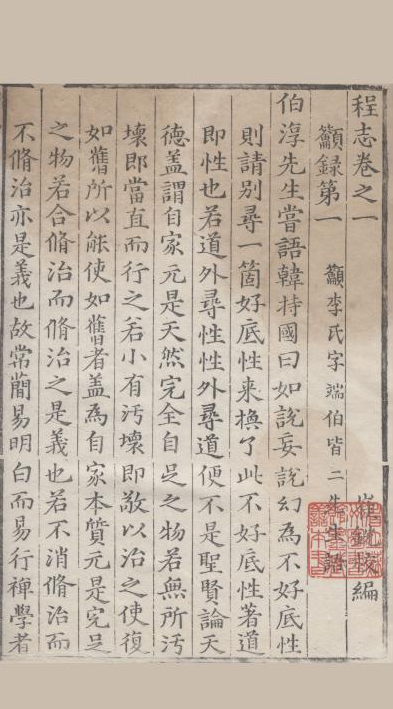 程志卷之一 編
籲錄第一 籲李氏字端伯皆二先生語
伯淳先生嘗語韓持國曰如說妄說幻為不好底性
則請別尋一箇好底性來換了此不好底性著道
即性也若道外尋性性外尋道便不是聖賢論天
德蓋謂自家元是天然完全自足之物若無所汚
壞即當直而行之若小有汚壞即敬以治之使復
如舊所以能使如舊者蓋為自家本質元是完足
之物若合脩治而脩治之是義也若不消脩治而
不脩治亦是義也故常蕳易明白而易行禅學者